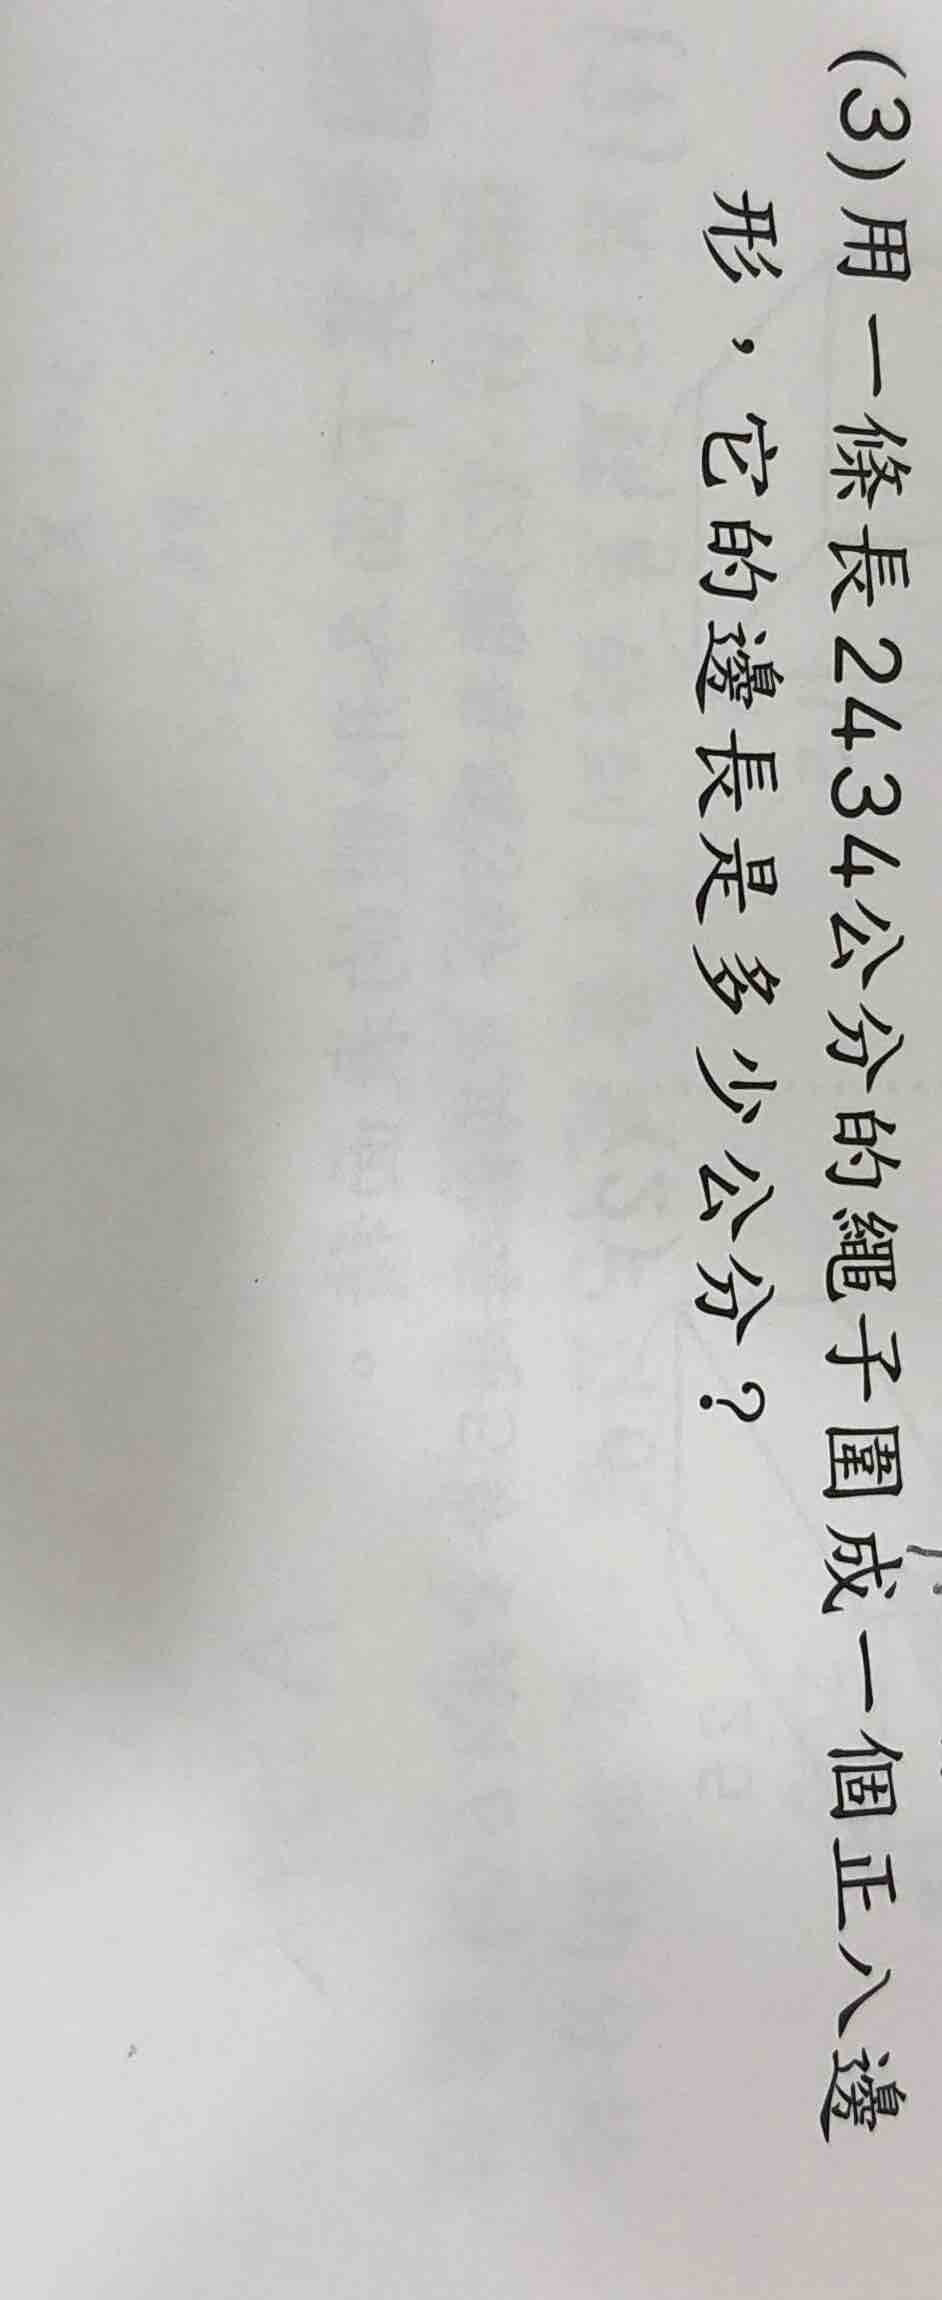 (3)用一條長2434公分的繩子圍成一個正八邊
形，它的邊長是多少公分？